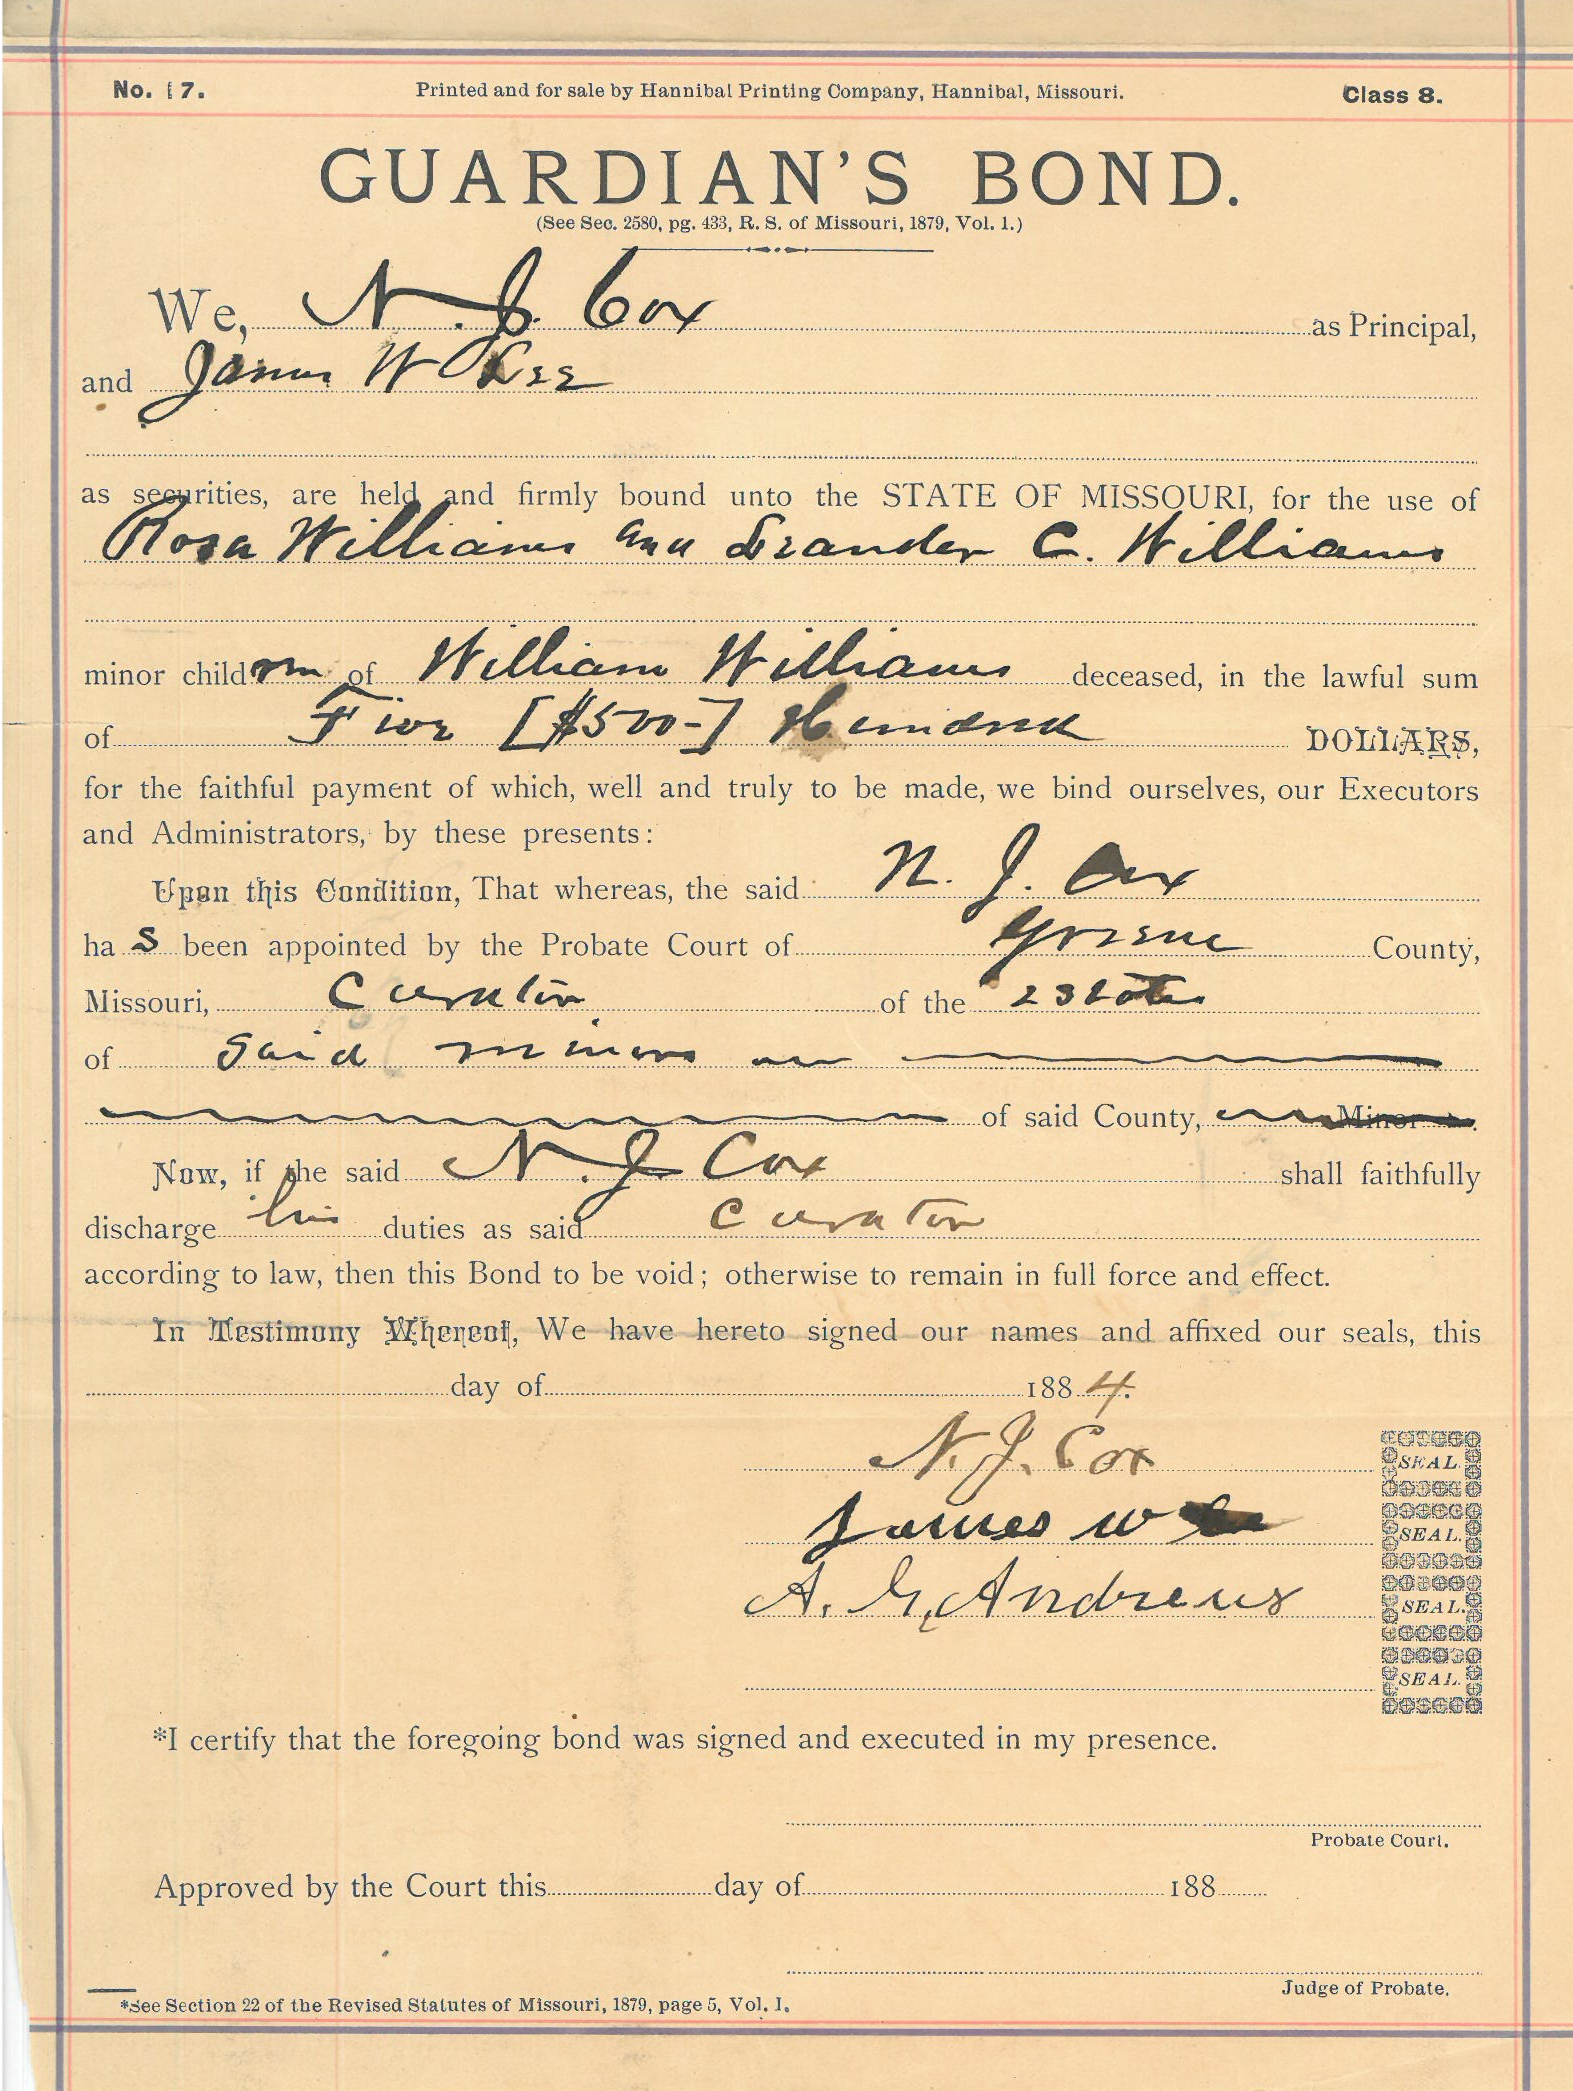 No. 17.
Printed and for sale by Hannibal Printing Company, Hannibal, Missouri.
Class 8.
GUARDIAN'S BOND.
(See Sec. 2580, pg. 433, R. S. of Missouri, 1879, Vol. 1.)
We, N. J. Cox as Principal,
and James W Lee
as securities, are held and firmly bound unto the STATE OF MISSOURI, for the use of
Rosa Williams and Leander C. Williams
minor children of William Williams deceased, in the lawful sum
of Five [$500-] Hundred DOLLARS,
for the faithful payment of which, well and truly to be made, we bind ourselves, our Executors
and Administrators, by these presents:
Upon this Condition, That whereas, the said N. J. Cox
has been appointed by the Probate Court of Greene County,
Missouri, Curator of the estates
of said minors
of said County, Minor
Now, if the said N. J. Cox shall faithfully
discharge his duties as said Curator
according to law, then this Bond to be void; otherwise to remain in full force and effect.
In Testimony Whereof, We have hereto signed our names and affixed our seals, this
day of 1884.
N. J. Cox SEAL.
James W Lee SEAL.
A. G. Andrews SEAL.
SEAL.
*I certify that the foregoing bond was signed and executed in my presence.
Probate Court.
Approved by the Court this day of 188
Judge of Probate.
*See Section 22 of the Revised Statutes of Missouri, 1879, page 5, Vol. I.